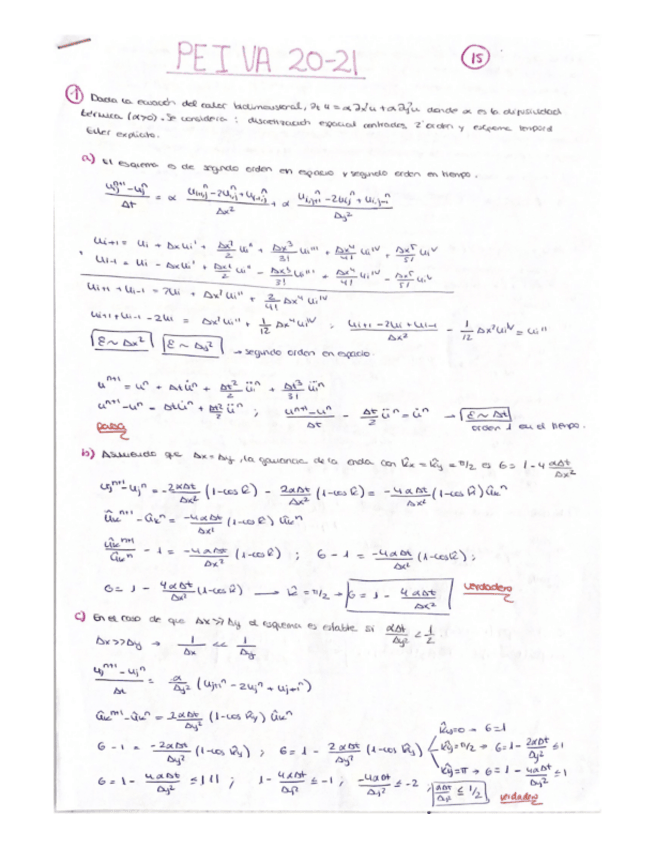 PEI VA 20-21
15
1 Dada la ecuación del calor bidimensional, ∂t u = α ∂x²u + α ∂y²u donde α es la difusividad
térmica (α>0). Se considera: discretización espacial centrada, 2º orden y esquema temporal
Euler explícito.
a) El esquema es de segundo orden en espacio y segundo orden en tiempo.
(uij^n+1 - uij^n)/Δt = α (ui+1,j^n - 2uij^n + ui-1,j^n)/Δx² + α (ui,j+1^n - 2uij^n + ui,j-1^n)/Δy²
ui+1 = ui + Δx ui' + Δx²/2 ui'' + Δx³/3! ui''' + Δx⁴/4! ui^IV + Δx⁵/5! ui^V
ui-1 = ui - Δx ui' + Δx²/2 ui'' - Δx³/3! ui''' + Δx⁴/4! ui^IV - Δx⁵/5! ui^V
ui+1 + ui-1 = 2ui + Δx² ui'' + 2/4! Δx⁴ ui^IV
ui+1 + ui-1 - 2ui = Δx² ui'' + 1/12 Δx⁴ ui^IV ; (ui+1 - 2ui + ui-1)/Δx² - 1/12 Δx² ui^IV = ui''
ε ~ Δx² ε ~ Δy² → segundo orden en espacio.
u^n+1 = u^n + Δt u̇^n + Δt²/2 ü^n + Δt³/3! u⃛^n
u^n+1 - u^n = Δt u̇^n + Δt²/2 ü^n ; (u^n+1 - u^n)/Δt - Δt/2 ü^n = u̇^n → ε ~ Δt
falso orden 1 en el tiempo.
b) Asumiendo que Δx = Δy, la ganancia de la onda con k̂x = k̂y = π/2 es G = 1 - 4 αΔt/Δx²
uj^n+1 - uj^n = - 2αΔt/Δx² (1-cos k̂) - 2αΔt/Δx² (1-cos k̂) = - 4αΔt/Δx² (1-cos k̂) ûk^n
ûk^n+1 - ûk^n = -4αΔt/Δx² (1-cos k̂) ûk^n
ûk^n+1/ûk^n - 1 = -4αΔt/Δx² (1-cos k̂) ; G - 1 = -4αΔt/Δx² (1-cos k̂) ;
G = 1 - 4αΔt/Δx² (1-cos k̂) → k̂ = π/2 → G = 1 - 4αΔt/Δx² verdadero
c) En el caso de que Δx >> Δy el esquema es estable si αΔt/Δy² < 1/2
Δx >> Δy → 1/Δx << 1/Δy
(uj^n+1 - uj^n)/Δt = α/Δy² (uj+1^n - 2uj^n + uj-1^n)
ûk^n+1 - ûk^n = 2αΔt/Δy² (1-cos k̂y) ûk^n
k̂y=0 → G=1
G - 1 = -2αΔt/Δy² (1-cos k̂y) ; G = 1 - 2αΔt/Δy² (1-cos k̂y) k̂y=π/2 → G = 1 - 2αΔt/Δy² ≤ 1
k̂y=π → G = 1 - 4αΔt/Δy² ≤ 1
G = 1 - 4αΔt/Δy² ≤ |1| ; 1 - 4αΔt/Δy² ≤ -1 ; -4αΔt/Δy² ≤ -2 ; αΔt/Δy² ≤ 1/2 verdadero